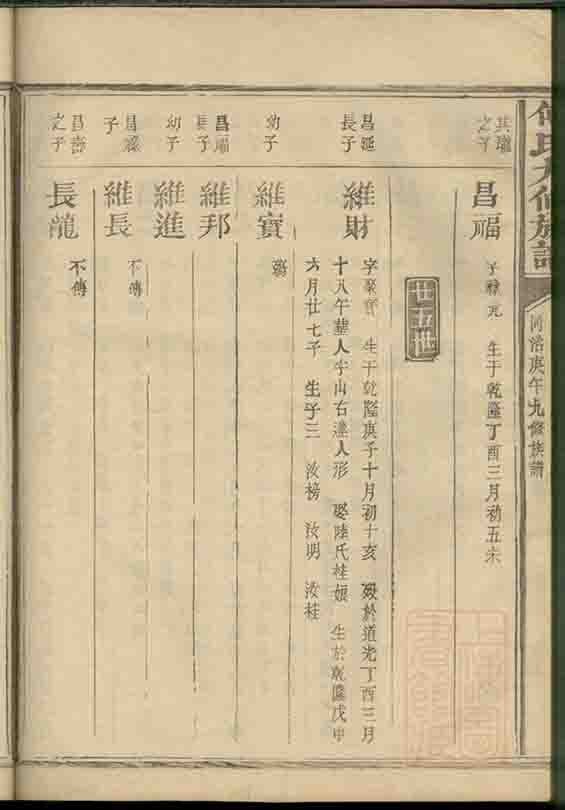 何氏九修族譜
同治庚午九修族譜
其瓏之子
昌福
字祿元 生于乾隆丁酉三月初五未
廿五世
昌延長子
維財
字聚寶 生于乾隆庚子十月初十亥 歿於道光丁酉三月
十八午塟人字山右邊人形 娶陸氏桂娘 生於乾隆戊申
六月廿七子 生子三 汝榜 汝明 汝桂
幼子
維寶
殤
昌福長子
維邦
幼子
維進
昌祿子
維長
不傳
昌壽之子
長龍
不傳